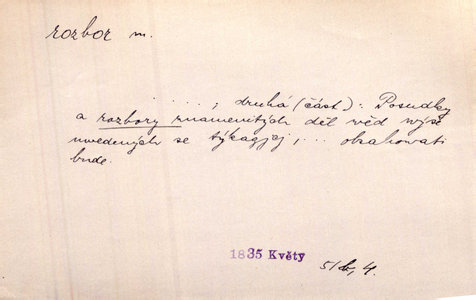 rozbor m.
....., druhá (část): Posudky
a rozbory znamenitých děl věd výše
uvedených se týkagjcj, ... obsahowati
bude.
1835 Květy
51b, 4.